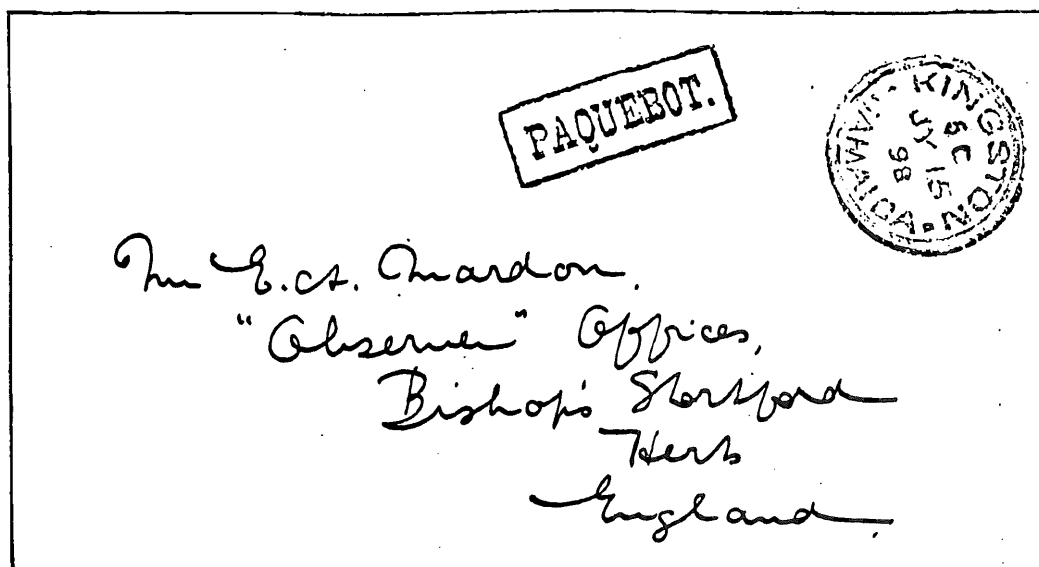 PAQUEBOT.
KINGSTON
JAMAICA
JY 15
98
Mr E.A. Mardon,
"Observer" Offices,
Bishop's Stortford
Herts
England.